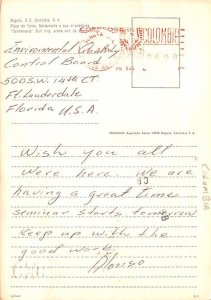 Bogotá, D. E. Colombia, S. A.
Plaza de Toros, Santamaría
"Santamaría" Bull ring,
COLOMBIA
Environmental Quality
Control Board
500 S.W. 14th CT
Ft. Lauderdale
Florida U.S.A.
Bogotá, Colombia S. A.
Wish you all
were here. We are
having a great time
seminar starts tomorrow
Keep up with the
good work.
Alonso
COLOMBIA